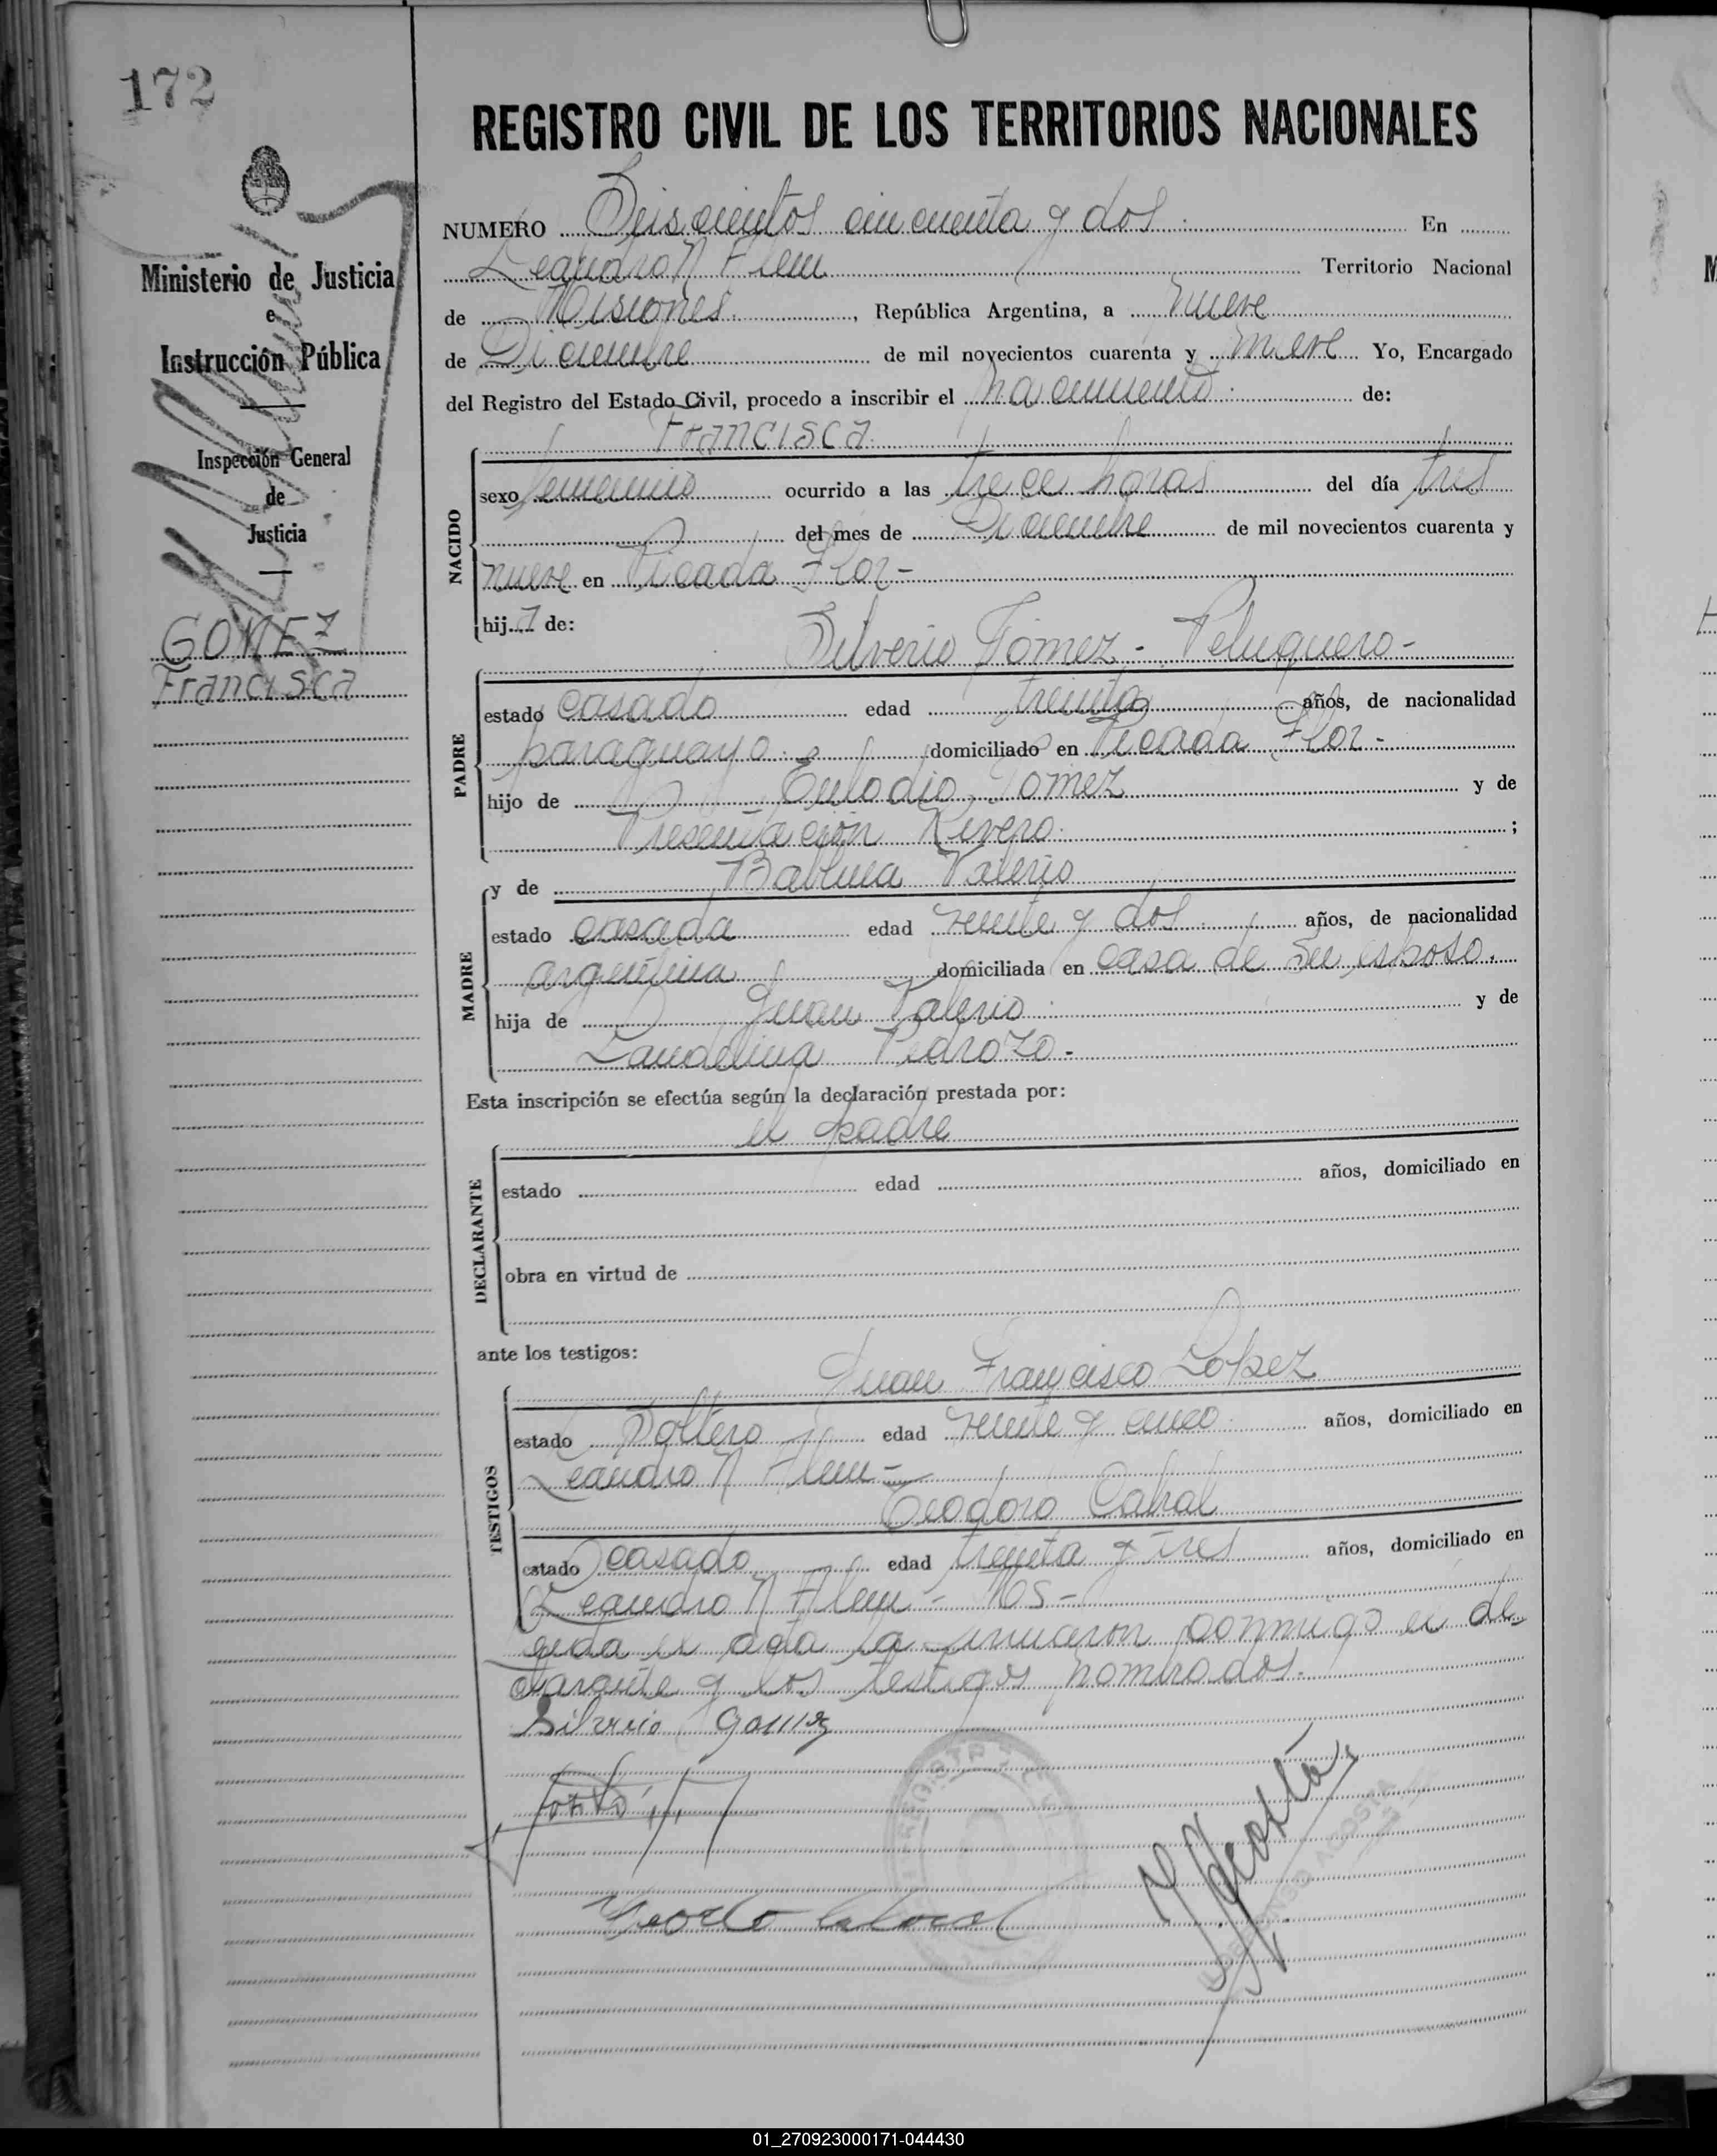 172
REGISTRO CIVIL DE LOS TERRITORIOS NACIONALES
Ministerio de Justicia
e
Instrucción Pública
Inspección General
de
Justicia
GOMEZ
Francisca
NUMERO Seiscientos cincuenta y dos. En
Leandro N Alem Territorio Nacional
de Misiones, República Argentina, a nueve
de Diciembre de mil novecientos cuarenta y nueve Yo, Encargado
del Registro del Estado Civil, procedo a inscribir el nacimiento de:
FRANCISCA
NACIDO
sexo femenino ocurrido a las trece horas del día tres
del mes de Diciembre de mil novecientos cuarenta y
nueve en Picada Flor-
hija de: Silverio Gómez - Peluquero-
PADRE
estado casado edad treinta años, de nacionalidad
paraguaya domiciliado en Picada Flor-
hijo de Eulodio Gómez y de
Presentación Rivero ;
MADRE
y de Balbina Valerio
estado casada edad veinte y dos años, de nacionalidad
argentina domiciliada en casa de su esposo.
hija de Juan Valerio y de
Candelina Pedrozo-
Esta inscripción se efectúa según la declaración prestada por:
el padre
DECLARANTE
estado edad años, domiciliado en
obra en virtud de
ante los testigos:
Juan Francisco Lopez
TESTIGOS
estado Soltero edad veinte y cinco años, domiciliado en
Leandro N Alem-
Teodoro Cabral
estado casado edad treinta y tres años, domiciliado en
Leandro N Alem - Mos-
Leida el acta la firmaron conmigo el de-
clarante y los testigos nombrados.
Silverio Gomez
Acosta
01_270923000171-044430